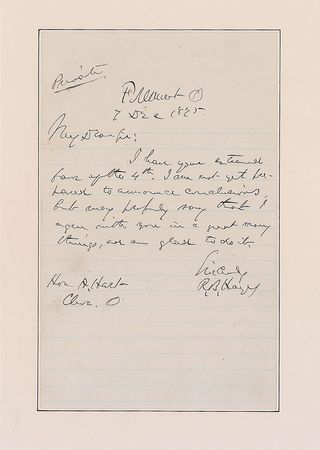 Private
Fremont O
7 Dec 1885
My Dear Sir:
I have your esteemed
favor of the 4th. I am not yet pre-
pared to announce conclusions,
but may properly say that I
agree with you in a great many
things, and am glad to do it.
Sincerely
R.B. Hayes
Hon A. Hart
Cleve. O